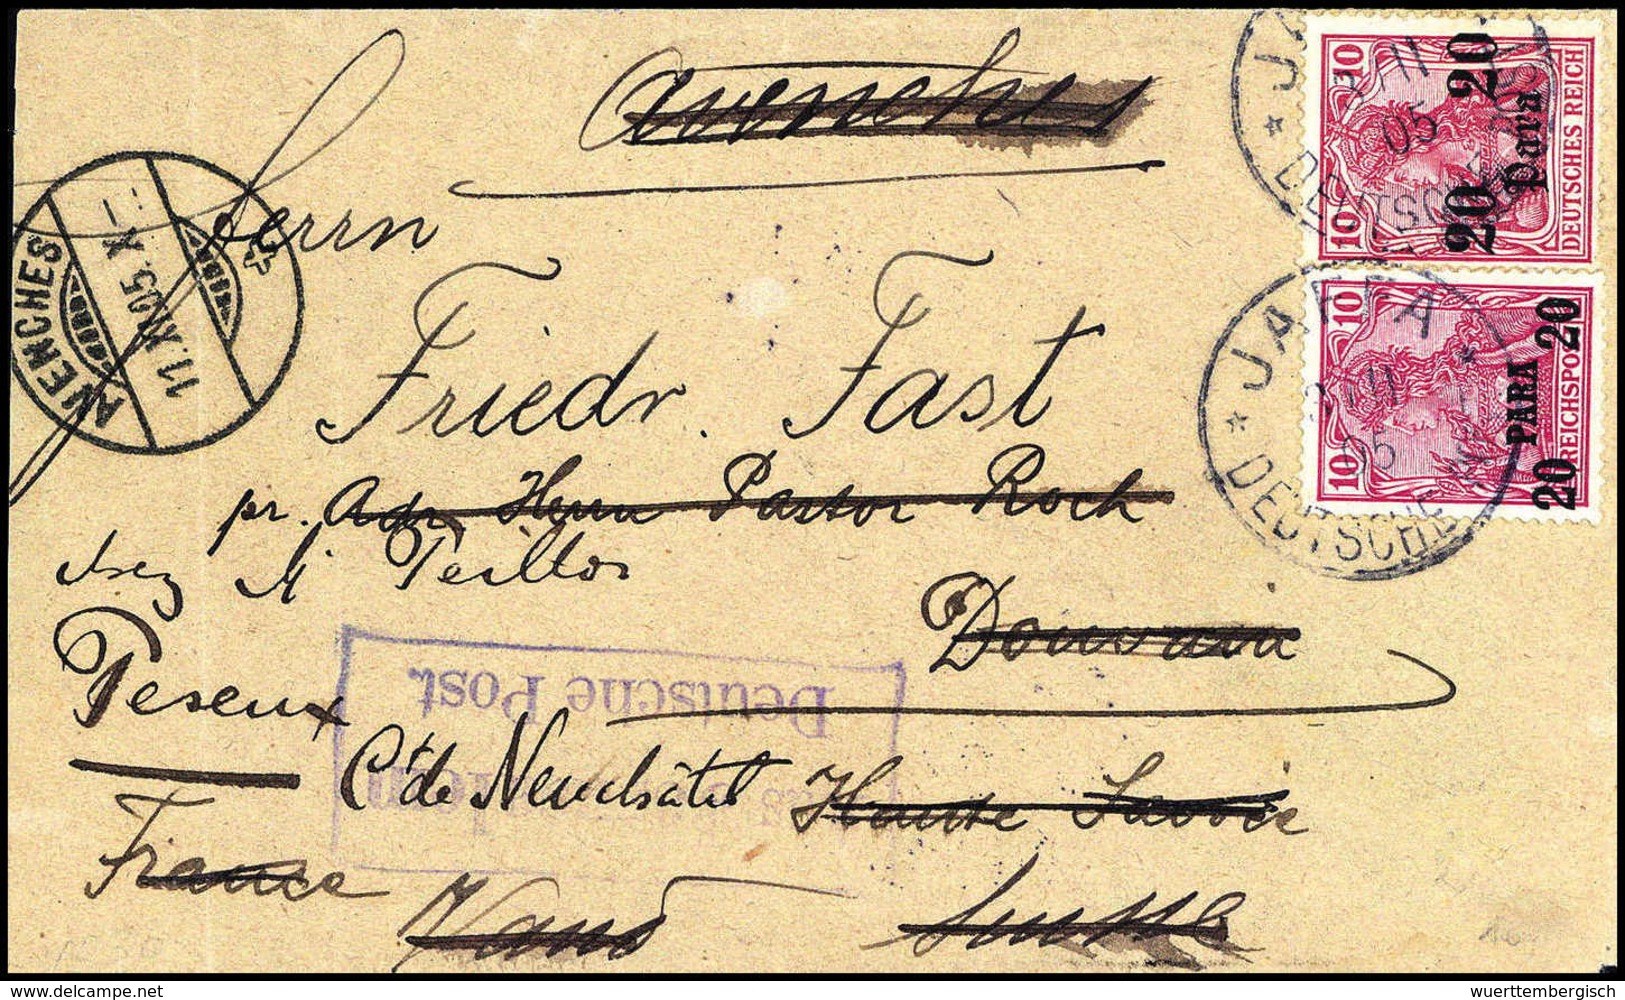 Avenches
Herrn
Friedr. Fast
pr. Adr. Herrn Pastor Roch
chez M
Peseux
Cn de Neuchâtel Haute Savoie
France Vaud Suisse
AVENCHES
11.XII.05.X-
JAFFA
II
05
DEUTSCHE
10 10
20 Para 20
DEUTSCHES REICH
JAFFA
05
DEUTSCHE
10 10
20 PARA 20
REICHSPOST
Deutsche Post.
www.delcampe.net
wuerttembergisch